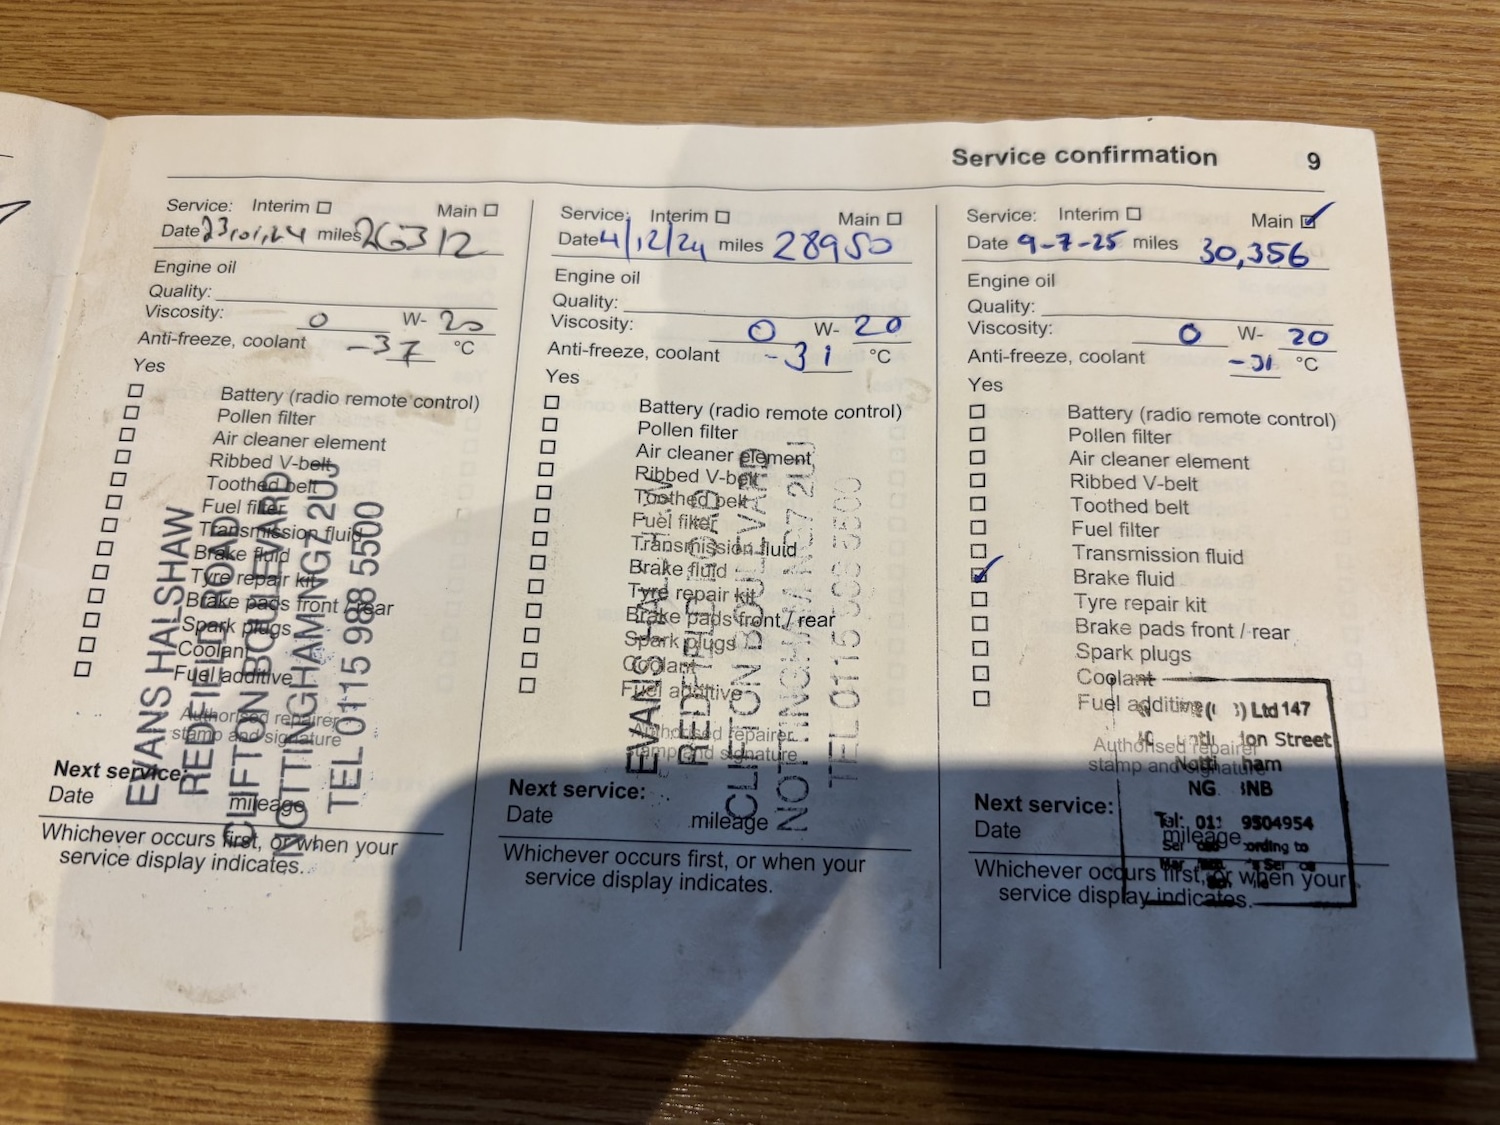 Service confirmation 9
Service: Interim Main
Date 23,01,24 miles 26312
Engine oil
Quality:
Viscosity: 0 W- 20
Anti-freeze, coolant -37 °C
Yes
Battery (radio remote control)
Pollen filter
Air cleaner element
Ribbed V-belt
Toothed belt
Fuel filter
Transmission fluid
Brake fluid
Tyre repair kit
Brake pads front / rear
Spark plugs
Coolant
Fuel additive
Authorised repairer
stamp and signature
EVANS HALSHAW
REDFIELD ROAD
CLIFTON BOULEVARD
NOTTINGHAM NG7 2UJ
TEL 0115 988 5500
Next service:
Date mileage
Whichever occurs first, or when your
service display indicates.
Service: Interim Main
Date 4/12/24 miles 28950
Engine oil
Quality:
Viscosity: 0 W- 20
Anti-freeze, coolant -31 °C
Yes
Battery (radio remote control)
Pollen filter
Air cleaner element
Ribbed V-belt
Toothed belt
Fuel filter
Transmission fluid
Brake fluid
Tyre repair kit
Brake pads front / rear
Spark plugs
Coolant
Fuel additive
Authorised repairer
stamp and signature
EVANS HALSHAW
REDFIELD ROAD
CLIFTON BOULEVARD
NOTTINGHAM NG7 2UJ
TEL 0115 988 5500
Next service:
Date mileage
Whichever occurs first, or when your
service display indicates.
Service: Interim Main
Date 9-7-25 miles 30,356
Engine oil
Quality:
Viscosity: 0 W- 20
Anti-freeze, coolant -31 °C
Yes
Battery (radio remote control)
Pollen filter
Air cleaner element
Ribbed V-belt
Toothed belt
Fuel filter
Transmission fluid
Brake fluid
Tyre repair kit
Brake pads front / rear
Spark plugs
Coolant
Fuel additive
Authorised repairer
stamp and signature
Ltd 147
Street
NG
Tel:
Next service:
Date mileage
Whichever occurs first, or when your
service display indicates.